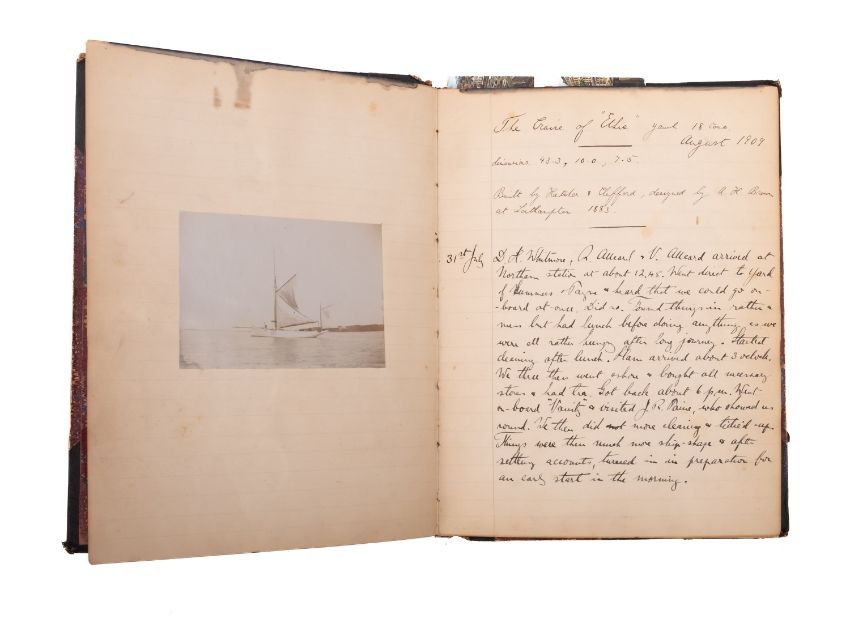 The Cruise of "Elsie" yawl 18 tons.
August 1909
dimensions 43.3, 10.0, 7.5.
Built by & Clifford, designed by A H Brown
at Southampton 1883.
31st July D. H. Whitmore, R. Alleard & V. Alleard arrived at
Northern station at about 12.45. Went direct to yard
of Summers & Payne & heard that we could go on-
board at once. Did so. Found things in rather a
mess but had lunch before doing anything, as we
were all rather hungry after long journey. Started
cleaning after lunch. arrived about 3 o'clock.
We three then went ashore & bought all necessary
stores & had tea. Got back about 6 p.m. Went
on-board "Vanity" & visited J. R. Paine, who showed us
round. We then did more cleaning & titivated-up.
Things were then much more ship-shape & after
settling accounts, turned in in preparation for
an early start in the morning.